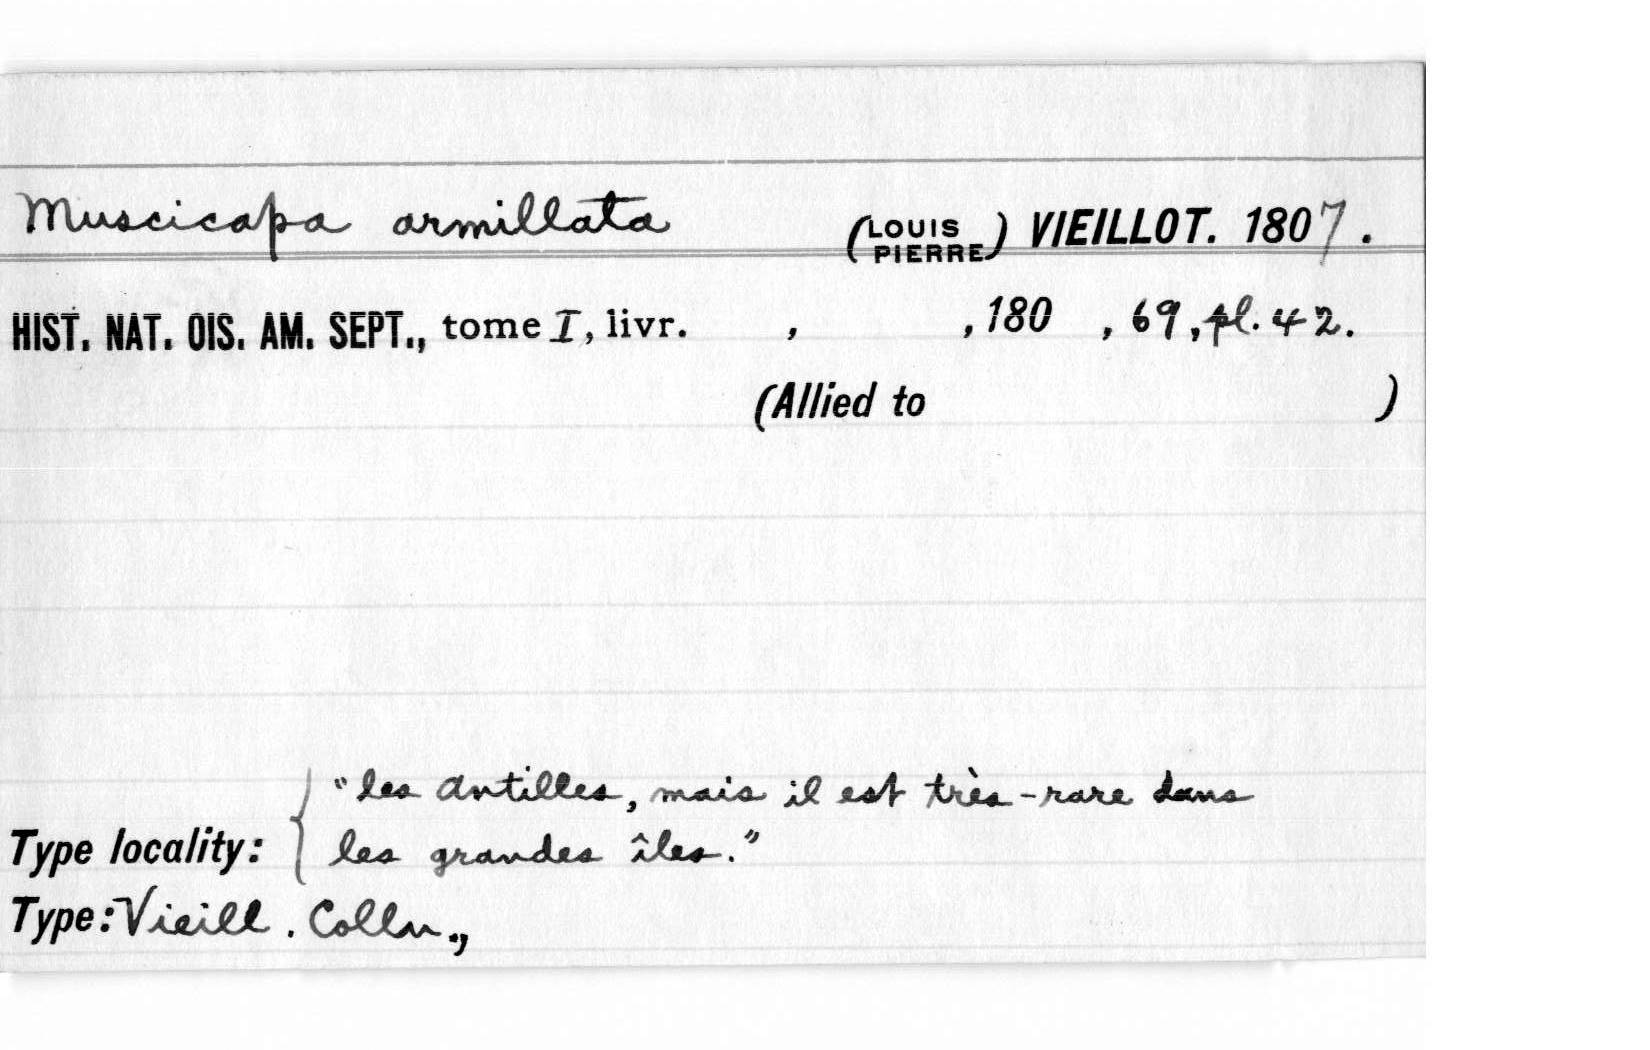 Muscicapa armillata (LOUIS PIERRE) VIEILLOT. 1807.
HIST. NAT. OIS. AM. SEPT., tome I, livr. , , 180 , 69, pl. 42.
(Allied to )
"les Antilles, mais il est très-rare dans
Type locality: les grandes îles."
Type: Vieill. Colln.,